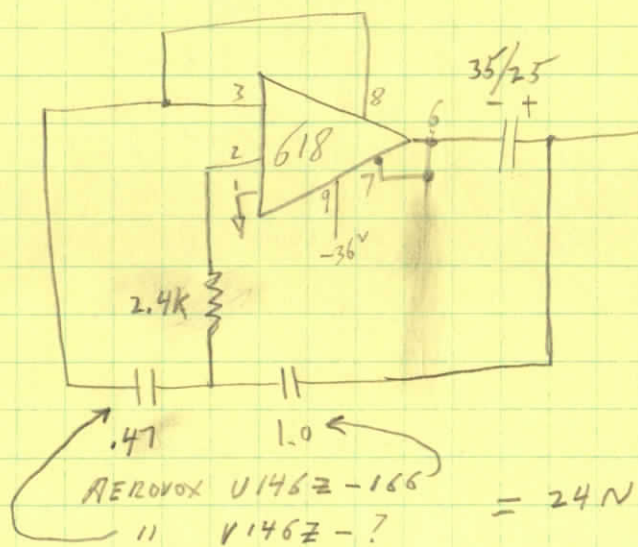 35/25
- +
3
8
6
2
618
7
9
-36v
2.4K
.47
1.0
AEROVOX V146Z-166
" V146Z-?
= 24 N